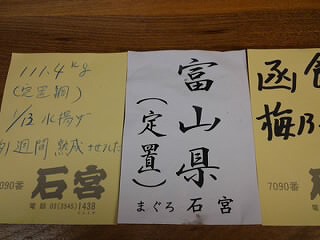 111.4kg
(定置網)
1/13 水揚げ
週間熟成させました
7090番
石宮
電話 03(3545)1438
富山県
(定置)
まぐろ 石宮
函
梅乃
7090番
電